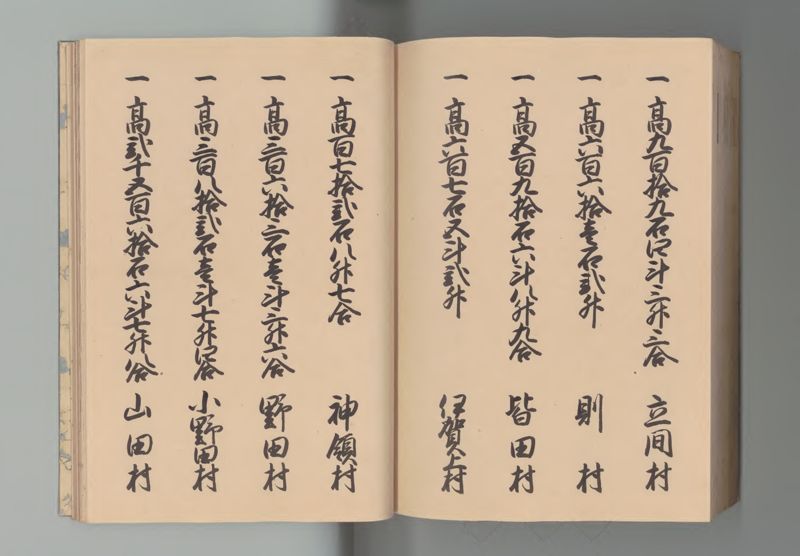 一 高九百拾九石四斗三升三合 立間村
一 高六百六拾壱石弐升 則村
一 高五百九拾石六斗八升九合 皆田村
一 高六百七石五斗弐升 伊賀上村
一 高百七拾弐石八升七合 神領村
一 高三百六拾三石壱斗三升六合 野田村
一 高三百八拾弐石壱斗七升四合 小野田村
一 高弐千五百六拾石六斗七升八合 山田村